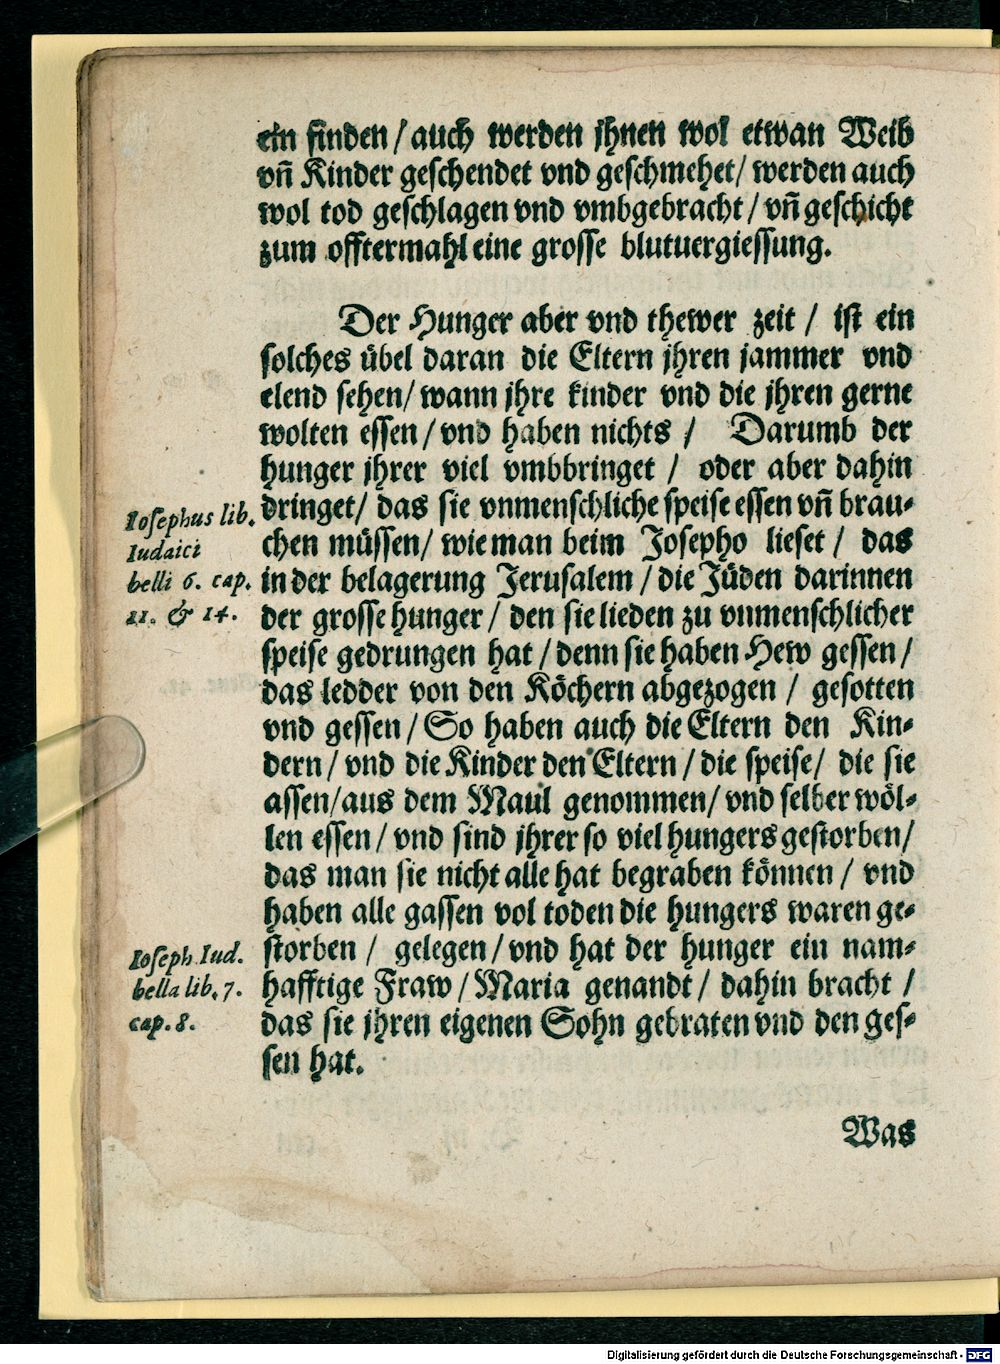 ein finden / auch werden jhnen wol etwan Weib
vñ Kinder geschendet vnd geschmehet / werden auch
wol tod geschlagen vnd vmbgebracht / vñ geschicht
zum offtermahl eine grosse blutuergiessung.
Der Hunger aber vnd thewer zeit / ist ein
solches übel daran die Eltern jhren jammer vnd
elend sehen / wann jhre kinder vnd die jhren gerne
wolten essen / vnd haben nichts / Darumb der
hunger jhrer viel vmbbringet / oder aber dahin
dringet / das sie vnmenschliche speise essen vñ brau-
chen müssen / wie man beim Josepho lieset / das
in der belagerung Jerusalem / die Jüden darinnen
der grosse hunger / den sie lieden zu vnmenschlicher
speise gedrungen hat / denn sie haben Hew gessen /
das ledder von den Köchern abgezogen / gesotten
vnd gessen / So haben auch die Eltern den Kin-
dern / vnd die Kinder den Eltern / die speise / die sie
assen / aus dem Maul genommen / vnd selber wöl-
len essen / vnd sind jhrer so viel hungers gestorben /
das man sie nicht alle hat begraben können / vnd
haben alle gassen vol toden die hungers waren ge-
storben / gelegen / vnd hat der hunger ein nam-
hafftige Fraw / Maria genandt / dahin bracht /
das sie jhren eigenen Sohn gebraten vnd den ges-
sen hat.
Iosephus lib.
Iudaici
belli 6. cap.
11. & 14.
Ioseph. Iud.
bella lib. 7.
cap. 8.
Was
Digitalisierung gefördert durch die Deutsche Forschungsgemeinschaft - DFG